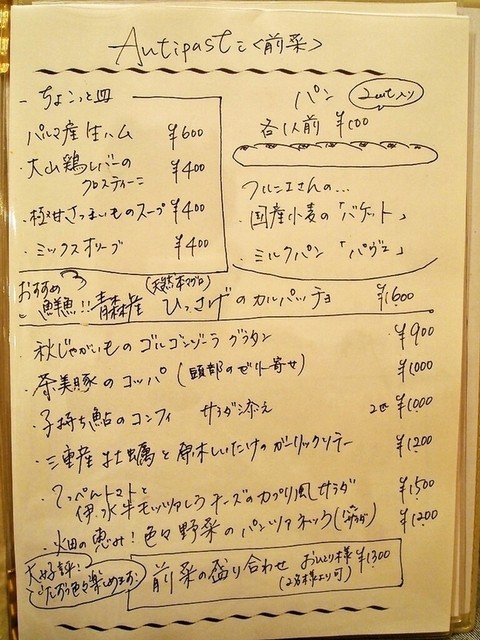 Antipasto <前菜>
ちょこっと皿
・パルマ産生ハム ¥600
・大山鶏レバーの
クロスティーニ ¥400
・極甘さつまいものスープ ¥400
・ミックスオリーブ ¥400
パン 2cut入り
各1人前 ¥100
フルニエさんの…
・国産小麦の「バゲット」
・ミルクパン「パヴェ」
おすすめ
鮮魚!! 青森産 (天然本マグロ) ひっさげのカルパッチョ ¥1600
・秋じゃがいものゴルゴンゾーラグラタン ¥900
・奈美豚のコッパ(頭部のゼリー寄せ) ¥1000
・子持ち鮎のコンフィ サラダ添え 2匹 ¥1000
・三重産牡蠣と原木しいたけのガーリックソテー ¥1200
・てっぺんトマトと
伊・水牛モッツァレラチーズのカプリ風サラダ ¥1500
・畑の恵み!色々野菜のパンツァネッラ(サラダ) ¥1200
大好評!
色々楽しめます
前菜の盛り合わせ おひとり様 ¥1300
(2名様より可)